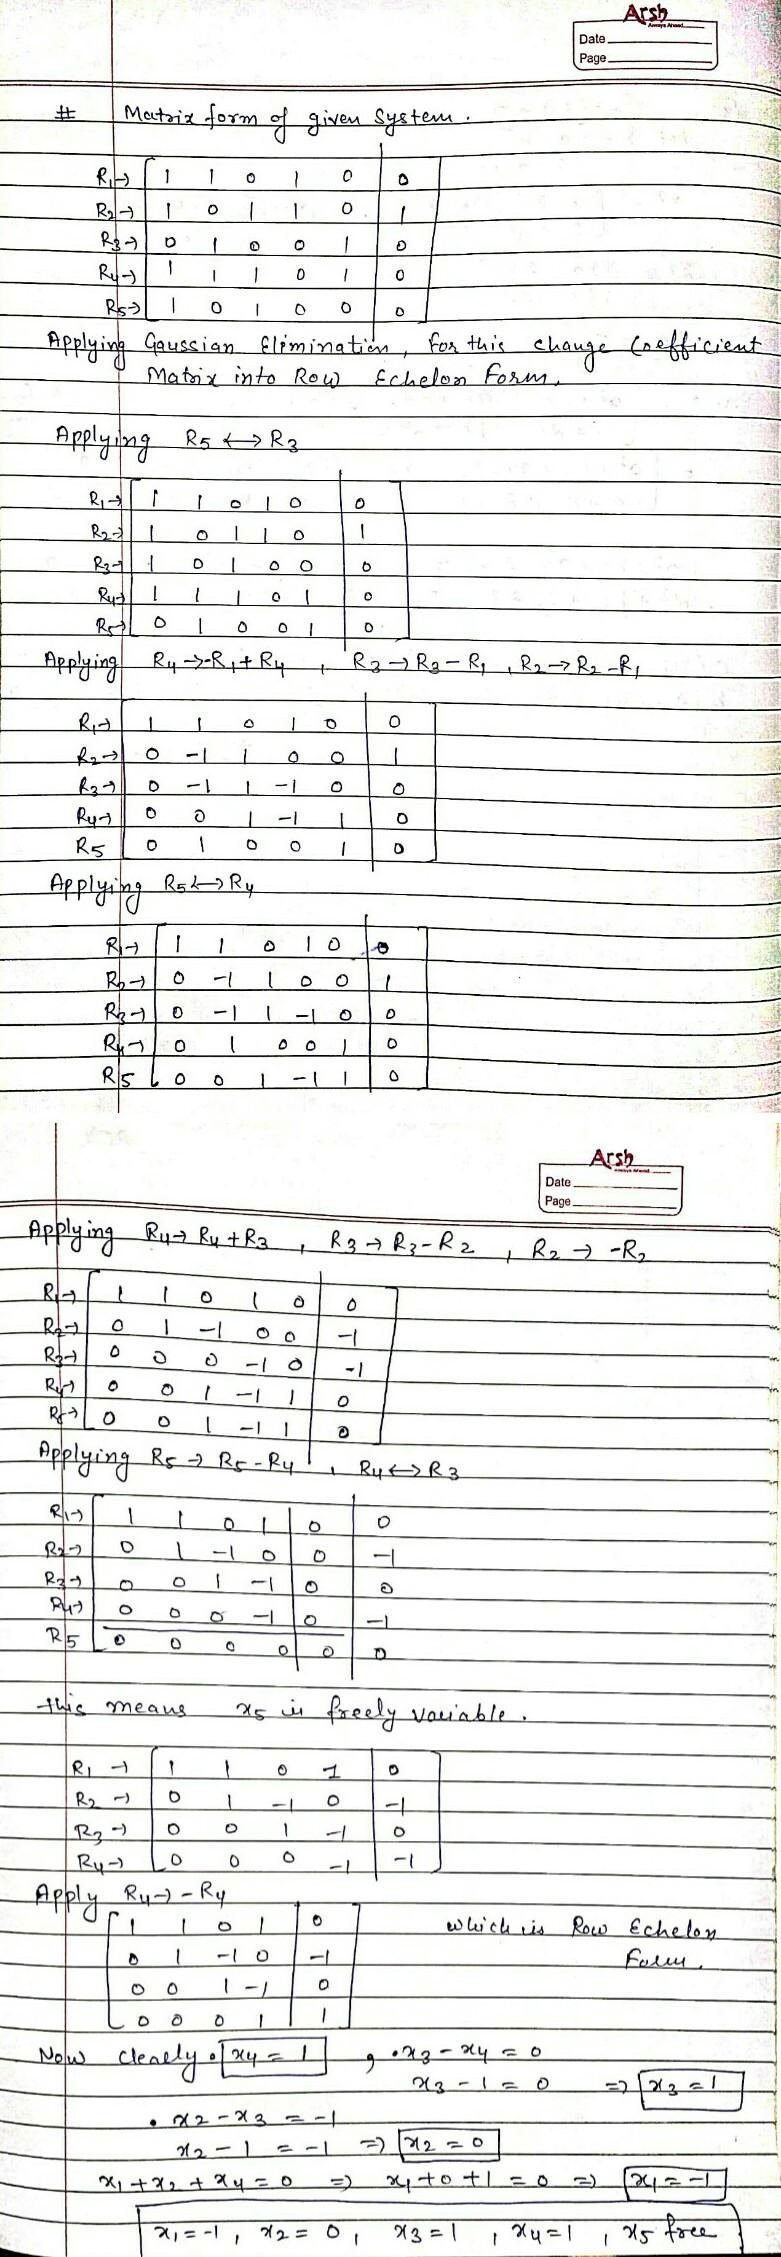 Arsh
Always Ahead
Date
Page
# Matrix form of given System.
R1→ 1 1 0 1 0 0
R2→ 1 0 1 1 0 1
R3→ 0 1 0 0 1 0
R4→ 1 1 1 0 1 0
R5→ 1 0 1 0 0 0
Applying Gaussian Elimination, for this change Coefficient
Matrix into Row Echelon Form.
Applying R5 ↔ R3
R1→ 1 1 0 1 0 0
R2→ 1 0 1 1 0 1
R3→ 1 0 1 0 0 0
R4→ 1 1 1 0 1 0
R5→ 0 1 0 0 1 0
Applying R4→-R1+R4 , R3→R3-R1 , R2→R2-R1
R1→ 1 1 0 1 0 0
R2→ 0 -1 1 0 0 1
R3→ 0 -1 1 -1 0 0
R4→ 0 0 1 -1 1 0
R5 0 1 0 0 1 0
Applying R5↔R4
R1→ 1 1 0 1 0 0
R2→ 0 -1 1 0 0 1
R3→ 0 -1 1 -1 0 0
R4→ 0 1 0 0 1 0
R5 0 0 1 -1 1 0
Arsh
Always Ahead
Date
Page
Applying R4→R4+R3 , R3→R3-R2 , R2→-R2
R1→ 1 1 0 1 0 0
R2→ 0 1 -1 0 0 -1
R3→ 0 0 0 -1 0 -1
R4→ 0 0 1 -1 1 0
R5→ 0 0 1 -1 1 0
Applying R5→R5-R4 , R4↔R3
R1→ 1 1 0 1 0 0
R2→ 0 1 -1 0 0 -1
R3→ 0 0 1 -1 0 0
R4→ 0 0 0 -1 0 -1
R5 0 0 0 0 0 0
this means x5 is freely variable.
R1→ 1 1 0 1 0
R2→ 0 1 -1 0 -1
R3→ 0 0 1 -1 0
R4→ 0 0 0 -1 -1
Apply R4→-R4
1 1 0 1 0 which is Row Echelon
0 1 -1 0 -1 Form.
0 0 1 -1 0
0 0 0 1 1
Now clearly • x4 = 1 , • x3 - x4 = 0
x3 - 1 = 0 ⇒ x3 = 1
• x2 - x3 = -1
x2 - 1 = -1 ⇒ x2 = 0
x1 + x2 + x4 = 0 ⇒ x1 + 0 + 1 = 0 ⇒ x1 = -1
x1 = -1 , x2 = 0 , x3 = 1 , x4 = 1 , x5 free